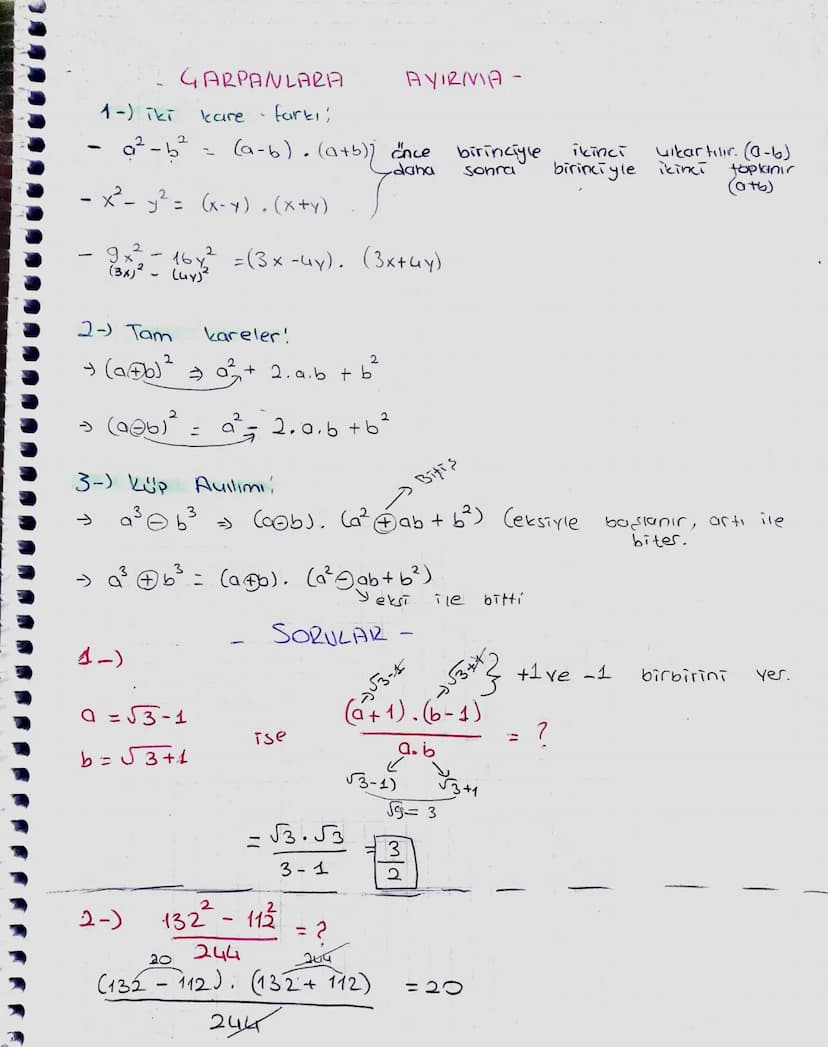 - ÇARPANLARA AYIRMA -
1-) iki kare farkı;
- a² - b² = (a-b) . (a+b) önce birinciyle ikinci çıkartılır. (a-b)
daha sonra birinciyle ikinci toplanır
(a+b)
- x² - y² = (x-y) . (x+y)
- 9x² - 16y² = (3x - 4y) . (3x+4y)
(3x)² - (4y)²
2-) Tam kareler!
→ (a+b)² ⇒ a² + 2.a.b + b²
→ (a-b)² = a² - 2.a.b + b²
3-) Küp Açılımı;
Bitiş
→ a³ - b³ ⇒ (a-b) . (a² + ab + b²) (eksiyle başlanır, artı ile
biter.
→ a³ + b³ = (a+b) . (a² - ab + b²)
eksi ile bitti
- SORULAR -
1-)
√3-1 √3+1 } +1 ve -1 birbirini yer.
a = √3 - 1
b = √3+1
ise
(a+1) . (b-1)
a.b
= ?
√3-1) √3+1
√9 = 3
= √3 . √3
3 - 1
= 3
2
2-) 132² - 112²
244
= ?
20 244
(132 - 112) . (132 + 112) = 20
244